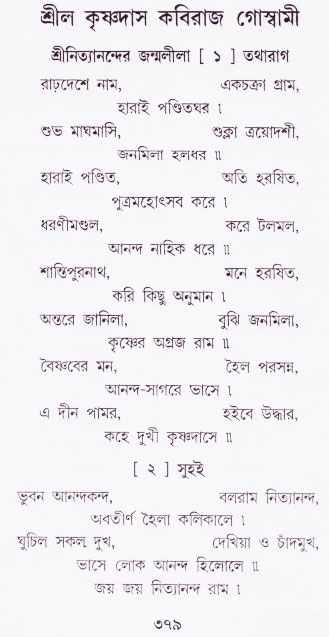 শ্রীল কৃষ্ণদাস কবিরাজ গোস্বামী
শ্রীনিত্যানন্দের জন্মলীলা [ ১ ] তথারাগ
রাঢ়দেশে নাম, একচক্রা গ্রাম,
হারাই পণ্ডিতঘর ৷
শুভ মাঘমাসি, শুক্লা ত্রয়োদশী,
জনমিলা হলধর ৷৷
হারাই পণ্ডিত, অতি হরষিত,
পুত্রমহোৎসব করে ৷
ধরণীমণ্ডল, করে টলমল,
আনন্দ নাহিক ধরে ৷৷
শান্তিপুরনাথ, মনে হরষিত,
করি কিছু অনুমান ৷
অন্তরে জানিলা, বুঝি জনমিলা,
কৃষ্ণের অগ্রজ রাম ৷৷
বৈষ্ণবের মন, হৈল পরসন্ন,
আনন্দ-সাগরে ভাসে ৷
এ দীন পামর, হইবে উদ্ধার,
কহে দুখী কৃষ্ণদাসে ৷৷
[ ২ ] সুহই
ভুবন আনন্দকন্দ, বলরাম নিত্যানন্দ,
অবতীর্ণ হৈলা কলিকালে ৷
ঘুচিল সকল দুখ, দেখিয়া ও চাঁদমুখ,
ভাসে লোক আনন্দ হিলোলে ৷৷
জয় জয় নিত্যানন্দ রাম ৷
৩৭৯